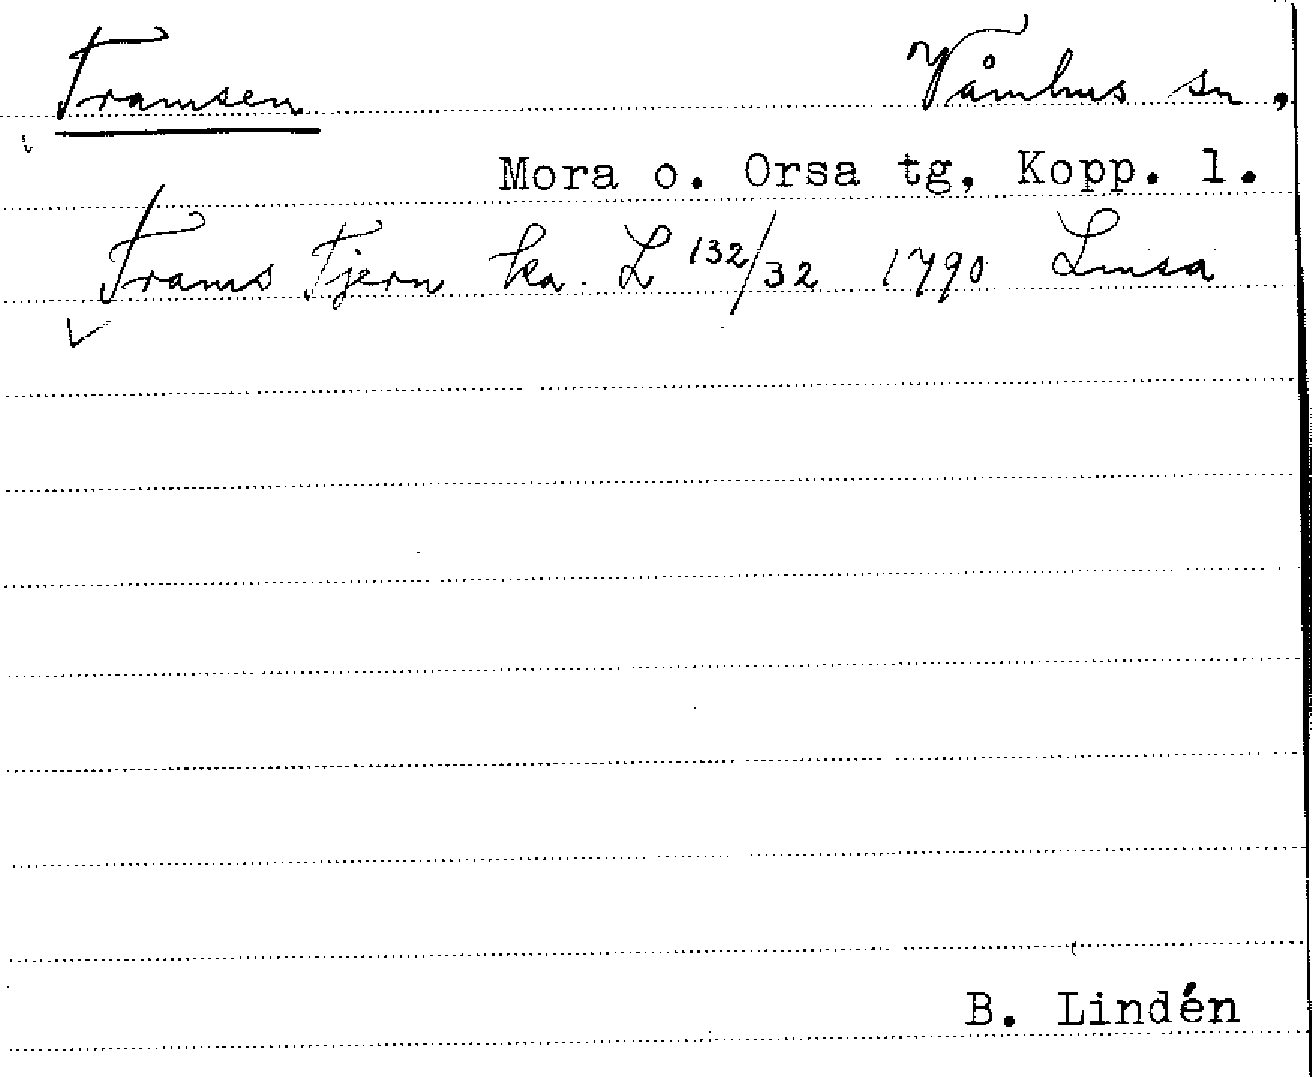 Tramsen Våmhus sn,
Mora o. Orsa tg, Kopp. l.
Trams Tjern ka. L 132/32 1790 Lmsa
B. Lindén